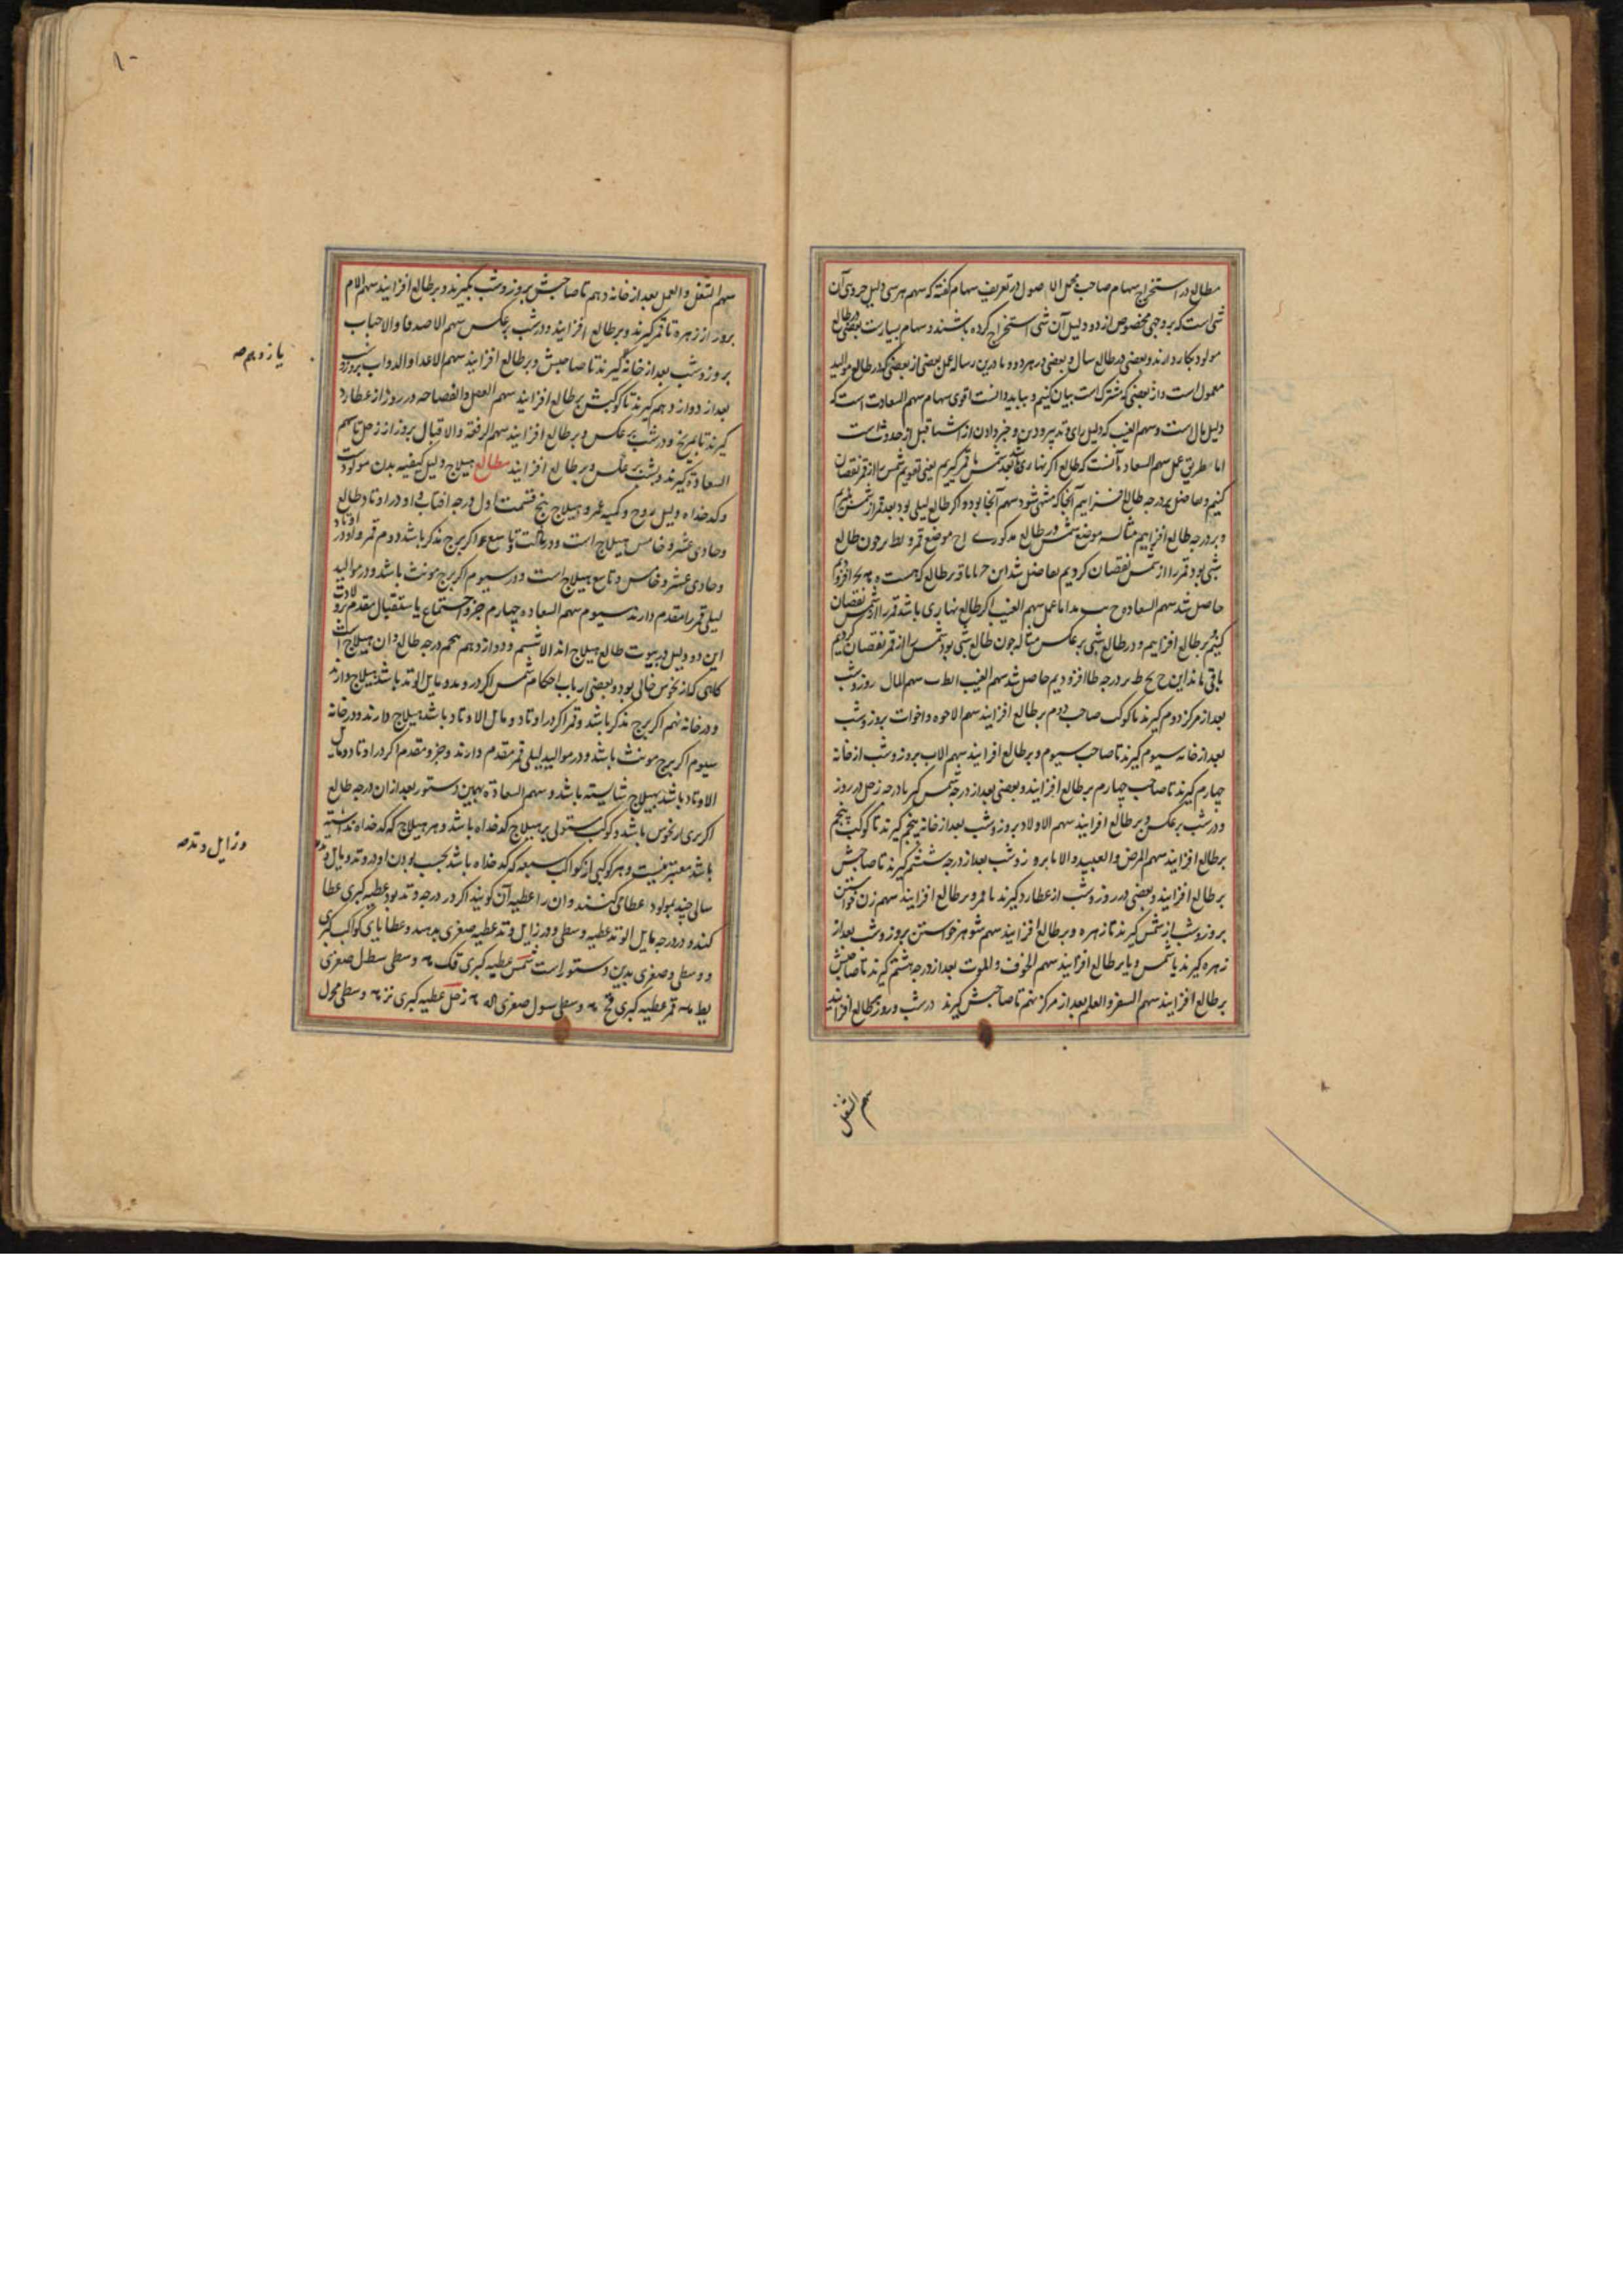 مطالع در استخراج سهام صاحب مجمل الاصول در تعریف سهام گفته که سهم هر سی دلیل جزوی آن
شی است که بر وجهی مخصوص از دو دلیل آن شی استخراج کرده باشند و سهام بسیارست بعضی در طالع
مولود بکار دارند و بعضی در طالع سال و بعضی در هر دو و ما درین رساله عمل بعضی از بعضی که در طالع موالید
معمول است و از بعضی که مشترک است بیان کنیم و بباید دانست اقوی سهام سهم السعادت است که
دلیل مال است و سهم الغیب که دلیل رای و تدبیر و دین و خبر دادن از اشیا قبل از حدوث است
اما طریق عمل سهم السعاده آنست که طالع اگر نهاری باشد بعد شمس تا قمر گیریم یعنی تقویم شمس را از قمر نقصان
کنیم و حاصل بدرجه طالع افزاییم آنجا که منتهی شود سهم آنجا بود و اگر طالع لیلی بود بعد قمر از شمس گیریم
و بر درجه طالع افزاییم مثاله موضع شمس در طالع مذکور ح موضع قمر و بط بر چون طالع
شبی بود قمر را از شمس نقصان کردیم حاصل شد این بر طالع که هست افزودیم
حاصل شد سهم السعاده ح اما عمل سهم الغیب اگر طالع نهاری باشد قمر را از شمس نقصان
کنیم بر طالع افزاییم و در طالع شبی بر عکس مثاله چون طالع شبی بود شمس را از قمر نقصان کردیم
باقی ماند این ح یح ط بر درجه طالع افزودیم حاصل شد سهم الغیب سهم المال روز و شب
بعد از مرکز دوم گیرند تا کوکب صاحب دوم بر طالع افزایند سهم الاخوه و اخوات بروز و شب
بعد از خانه سیوم گیرند تا صاحب سیوم و بر طالع افزایند سهم الاب بروز و شب از خانه
چهارم گیرند تا صاحب چهارم بر طالع افزایند و بعضی بعد از درجه شمس گیر تا درجه زحل در روز
و در شب بر عکس و بر طالع افزایند سهم الاولاد بروز و شب بعد از خانه پنجم گیرند تا کوکب پنجم
بر طالع افزایند سهم المرض والعبید والاما بروز و شب بعد از درجه ششم گیرند تا صاحبش
بر طالع افزایند و بعضی در روز و شب از عطارد گیرند تا قمر و بر طالع افزایند سهم زن خواستن
بروز و شب از شمس گیرند تا زهره و بر طالع افزایند سهم شوهر خواستن بروز و شب بعد از
زهره گیرند یا شمس و یا بر طالع افزایند سهم الخوف والموت بعد از درجه هشتم گیرند تا صاحبش
بر طالع افزایند سهم السفر والعلم بعد از مرکز نهم تا صاحبش گیرند در شب و روز بطالع افزایند
سهم الشغل
۱۰
سهم الشغل والعمل بعد از خانه دهم تا صاحبش بروز و شب بگیرند و بر طالع افزایند سهم الام
بروز از زهره تا قمر گیرند و بر طالع افزایند و در شب بر عکس سهم الاصدقا والاحباب
یازدهم صح
بروز و شب بعد از خانه گیرند تا صاحبش و بر طالع افزایند سهم الاعدا والدواب بروز و شب
بعد از دوازدهم گیرند تا کوکبش بر طالع افزایند سهم العقل والفصاحه در روز از عطارد
گیرند تا مریخ و در شب بر عکس و بر طالع افزایند سهم الرفعة والاقبال بروز از زحل تا سهم
السعادة گیرند و بشب بر عکس و بر طالع افزایند مطالع هیلاج دلیل کیفیه بدن مولودست
و کدخداه دلیل روح و کمیه عمر و هیلاج پنج قسمت اول درجه افتاب و او در اوتاد طالع
و حادی عشر و خامس هیلاج است و در ثالث و تاسع اگر برج مذکر باشد دوم قمر و او در اوتاد
و حادی عشر و خامس و تاسع هیلاج است و در سیوم اگر برج مونث باشد و در موالید
لیلی قمر را مقدم دارند سیوم سهم السعاده چهارم جزو اجتماع یا استقبال مقدم بر ولادت
این دو دلیل در بیوت طالع هیلاج اند الا ششم و دوازدهم پنجم درجه طالع و ان هیلاج است
گاهی که از نحوس خالی بود و بعضی ارباب احکام شمس اگر در وتد و مایل الوتد باشد هیلاج دارند
و در خانه نهم اگر برج مذکر باشد و قمر اگر در اوتاد و مایل الاوتاد باشد هیلاج دارند و در خانه
سیوم اگر برج مونث باشد و در موالید لیلی قمر مقدم دارند و جزو مقدم اگر در اوتاد و مایل
الاوتاد باشد بهیلاج شایسته باشد و سهم السعادة بهمین دستور بعد از ان درجه طالع
اگر بری از نحوس باشد و کوکب مستولی بر هیلاج کدخداه باشد و هر هیلاج که کدخداه نداشته
و زایل وتد صح
باشد معتبر نیست و هر کوکبی از کواکب سبعه که کدخداه باشد بحسب بودن او در وتد و مایل وتد
سالی چند بمولود اعطا می کنند و ان را عطیه آن گویند اگر در درجه وتد بود عطیه کبری عطا
کند و در درجه مایل الوتد عطیه وسطی و در زایل وتد عطیه صغری بدهد و عطایای کواکب کبری
و وسطی و صغری بدین دستور است شمس عطیه کبری قک وسطی سطل صغری
یط قمر عطیه کبری قح وسطی سول صغری اله زحل عطیه کبری نز وسطی مجول